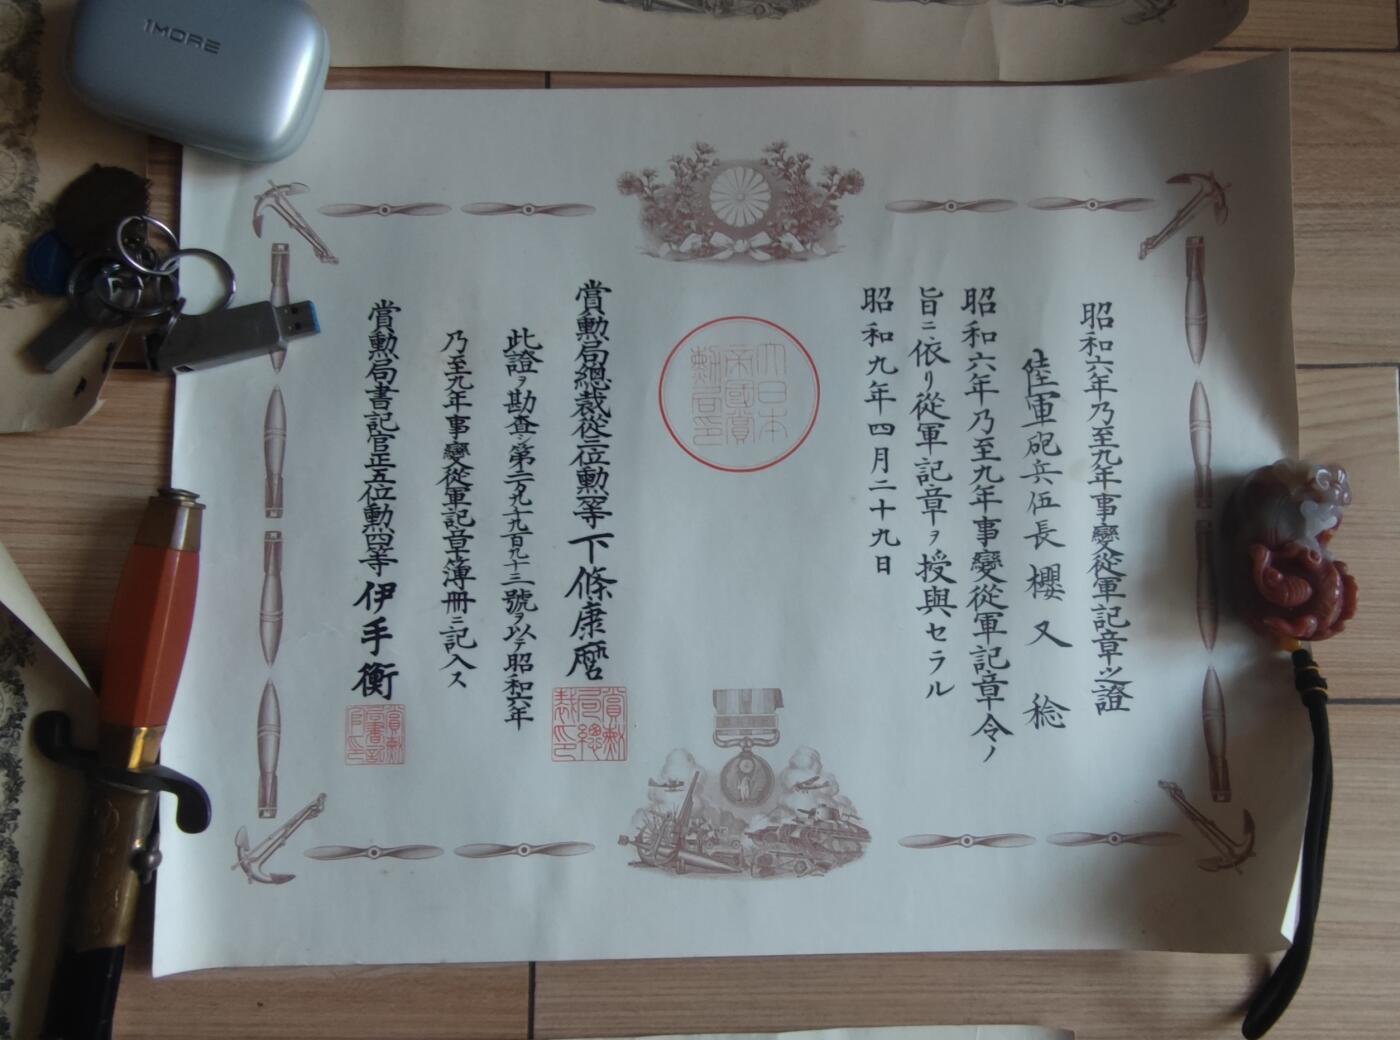 昭和六年乃至九年事變從軍記章之證
陸軍砲兵伍長櫻又稔
昭和六年乃至九年事變從軍記章令ノ
旨ニ依リ從軍記章ヲ授與セラル
昭和九年四月二十九日
大日本
帝國賞
勳局印
賞勳局總裁從三位勳一等下條康麿
賞勳
局總
裁印
此證ヲ勘査シ第二万九千九百九十三號ヲ以テ昭和六年
乃至九年事變從軍記章簿册ニ記入ス
賞勳局書記官正五位勳四等伊手衡
賞勳
局書記
官印
1MORE